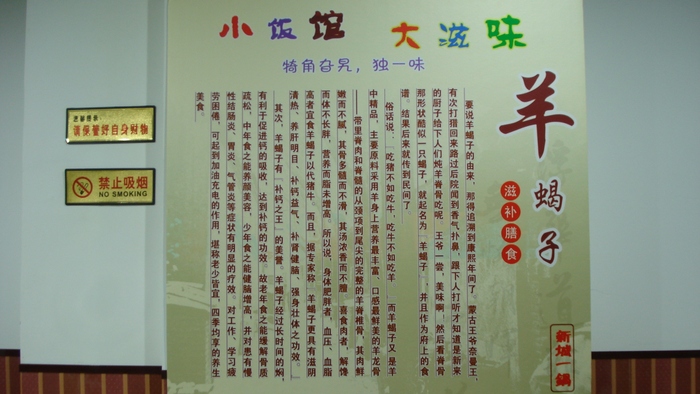 小饭馆 大滋味
犄角旮旯，独一味
羊蝎子
滋补膳食
要说羊蝎子的由来，那得追溯到康熙年间了，蒙古王爷奈曼王，
有次打猎回来路过后院闻到香气扑鼻，跟下人打听才知道是新来
的厨子给下人们炖羊脊骨吃呢，王爷一尝，美味啊！然后看脊骨
那形状酷似一只蝎子，就起名为“羊蝎子”，并且作为府上的食
谱。结果后来就传到民间了。
俗话说，“吃猪不如吃牛，吃牛不如吃羊”，而羊蝎子又是羊
中精品，主要原料采用羊身上营养最丰富、口感最鲜美的羊龙骨
——带里脊肉和脊髓的从颈项到尾尖的完整的羊脊椎骨，其肉鲜
嫩而不腻，其骨多髓而不滑，其汤浓香而不膻，喜食肉者，解馋
而体不长胖，营养而脂未增高。所以说，身体肥胖者，血压、血脂
高者宜食羊蝎子以代猪牛。而且，据专家称，羊蝎子更具有滋阴
清热、养肝明目、补钙益气、补肾健脑、强身壮体之功效。
其次，羊蝎子有“补钙之王”的美誉，羊蝎子经过长时间的焖，
有利于促进钙的吸收，达到补钙的功效，故老年食之能缓解骨质
疏松，中年食之能养颜美容，少年食之能健脑增高，并对患有慢
性结肠炎、胃炎、气管炎等症状有明显的疗效。对工作、学习疲
劳困倦，可起到加油充电的作用，堪称老少皆宜，四季均享的养生
美食。
新城一锅
请保管好自身财物
禁止吸烟
NO SMOKING